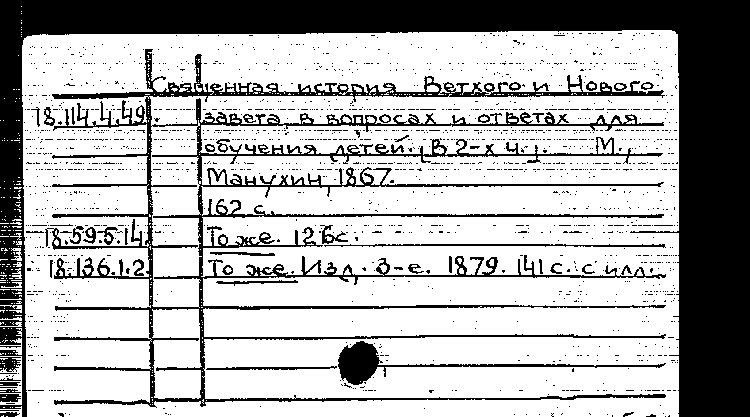 Священная история Ветхого и Нового
18.114.4.49. завета, в вопросах и ответах для
обучения детей. [В 2-х ч.]. М.,
Манухин, 1867.
162 с.
18.59.5.14. То же. 126с.
18.136.1.2. То же. Изд. 3-е. 1879. 141 с. с илл.